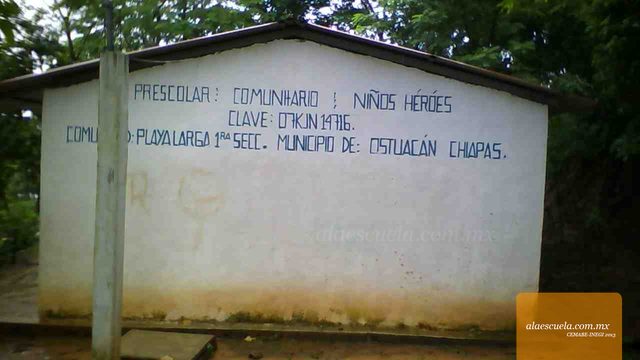 PRESCOLAR: COMUNITARIO ; NIÑOS HÉRÓES
CLAVE: 07KJN14716.
PLAYA LARGA 1RA SECC. MUNICIPIO DE: OSTUACÁN CHIAPAS.
alaescuela.com.mx
alaescuela.com.mx
CEMABE-INEGI 2013